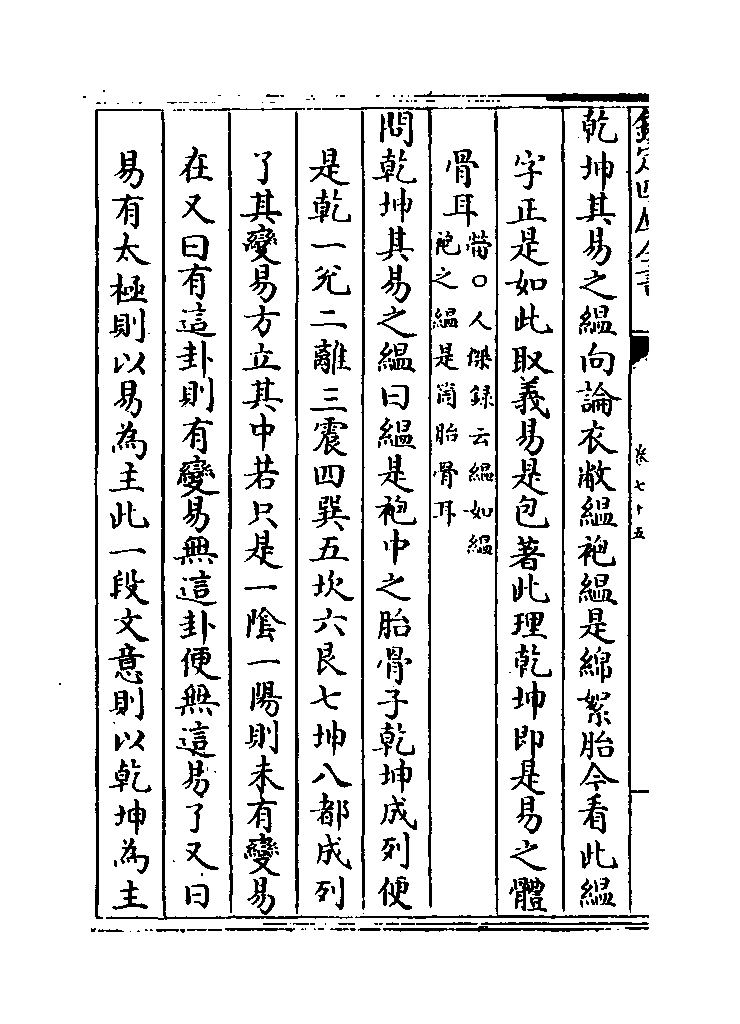 欽定四庫全書
卷七十五
乾坤其易之縕向論衣敝縕袍縕是綿絮胎今看此縕
字正是如此取義易是包著此理乾坤即是易之體
骨耳
㽦○人傑録云縕如縕
袍之縕是箇胎骨耳
問乾坤其易之縕曰縕是袍中之胎骨子乾坤成列便
是乾一兊二離三震四巽五坎六艮七坤八都成列
了其變易方立其中若只是一陰一陽則未有變易
在又曰有這卦則有變易無這卦便無這易了又曰
易有太極則以易為主此一段文意則以乾坤為主